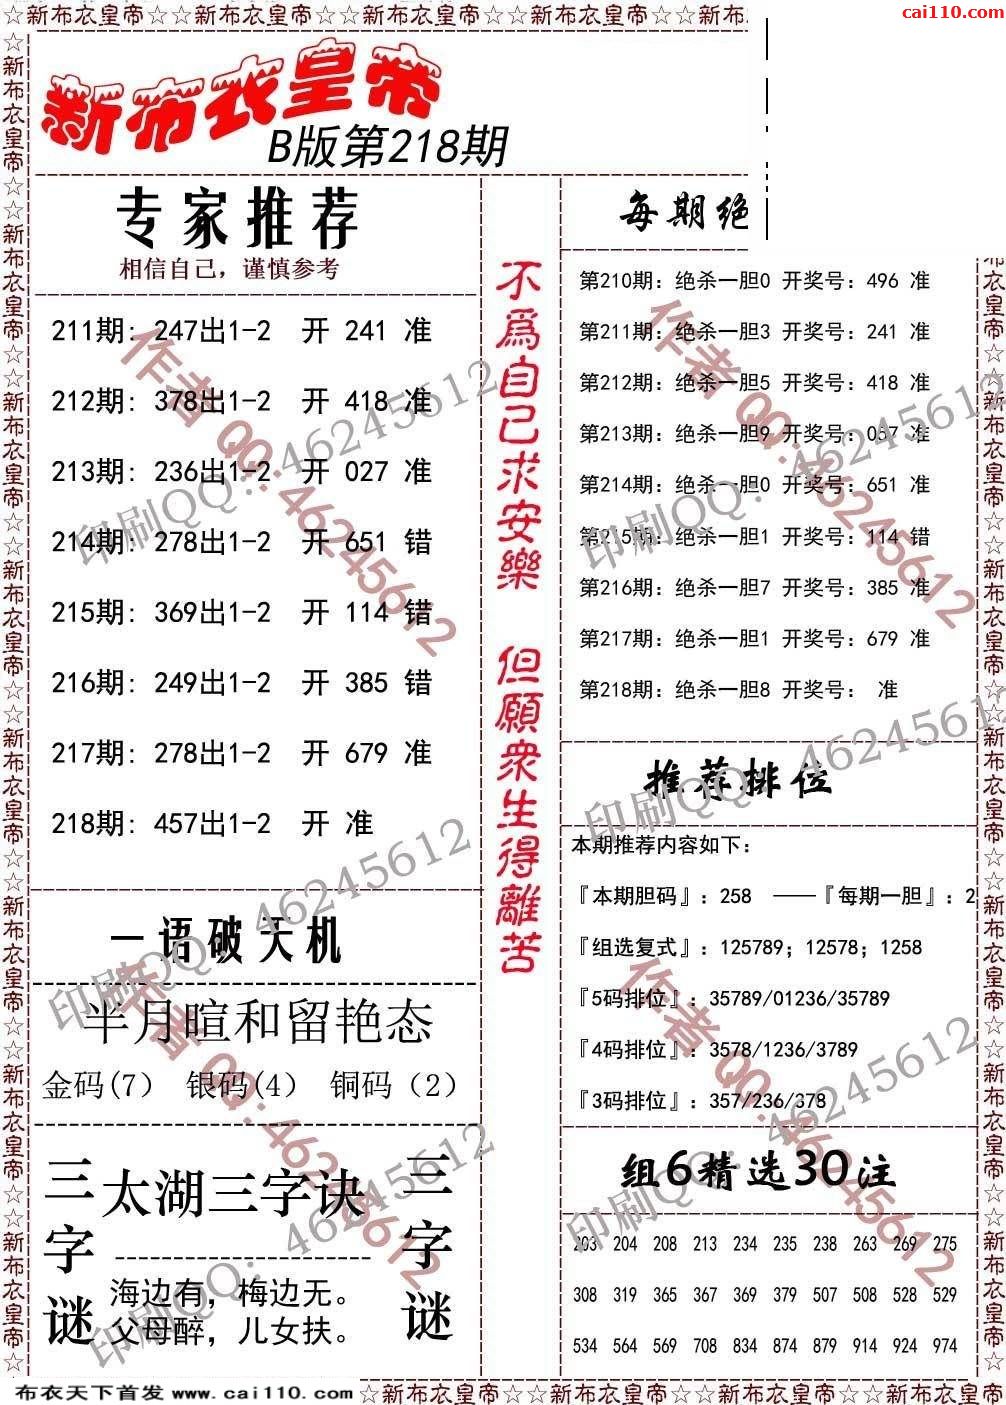 ☆新布衣皇帝☆☆新布衣皇帝☆☆新布衣皇帝☆☆新布衣皇帝☆☆新布
cai110.com
新布衣皇帝
B版第218期
专家推荐
相信自己，谨慎参考
211期: 247出1-2 开 241 准
212期: 378出1-2 开 418 准
213期: 236出1-2 开 027 准
214期: 278出1-2 开 651 错
215期: 369出1-2 开 114 错
216期: 249出1-2 开 385 错
217期: 278出1-2 开 679 准
218期: 457出1-2 开 准
一语破天机
半月暄和留艳态
金码(7) 银码(4) 铜码（2）
三字谜
太湖三字诀
海边有，梅边无。
父母醉，儿女扶。
三字谜
不爲自己求安樂 但願衆生得離苦
每期绝
第210期: 绝杀一胆0 开奖号: 496 准
第211期: 绝杀一胆3 开奖号: 241 准
第212期: 绝杀一胆5 开奖号: 418 准
第213期: 绝杀一胆9 开奖号: 037 准
第214期: 绝杀一胆0 开奖号: 651 准
第215期: 绝杀一胆1 开奖号: 114 错
第216期: 绝杀一胆7 开奖号: 385 准
第217期: 绝杀一胆1 开奖号: 679 准
第218期: 绝杀一胆8 开奖号: 准
推荐排位
本期推荐内容如下:
『本期胆码』: 258 ——『每期一胆』: 2
『组选复式』: 125789; 12578; 1258
『5码排位』: 35789/01236/35789
『4码排位』: 3578/1236/3789
『3码排位』: 357/236/378
组6精选30注
203 204 208 213 234 235 238 263 269 275
308 319 365 367 369 379 507 508 528 529
534 564 569 708 834 874 879 914 924 974
作者QQ:46245612
印刷QQ: 46245612
作者QQ:46245612
印刷QQ: 46245612
印刷QQ: 46245612
印刷QQ: 46245612
作者QQ:46245612
作者QQ:46245612
印刷QQ: 46245612
印刷QQ: 46245612
布衣天下首发 www.cai110.com
☆新布衣皇帝☆☆新布衣皇帝☆☆新布衣皇帝☆☆新布衣皇帝☆